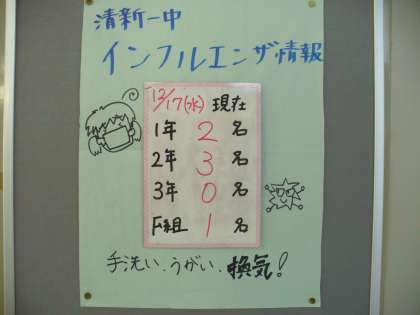 清新一中
インフルエンザ情報
12/17(水) 現在
1年 2 名
2年 3 名
3年 0 名
F組 1 名
手洗い、うがい、換気!